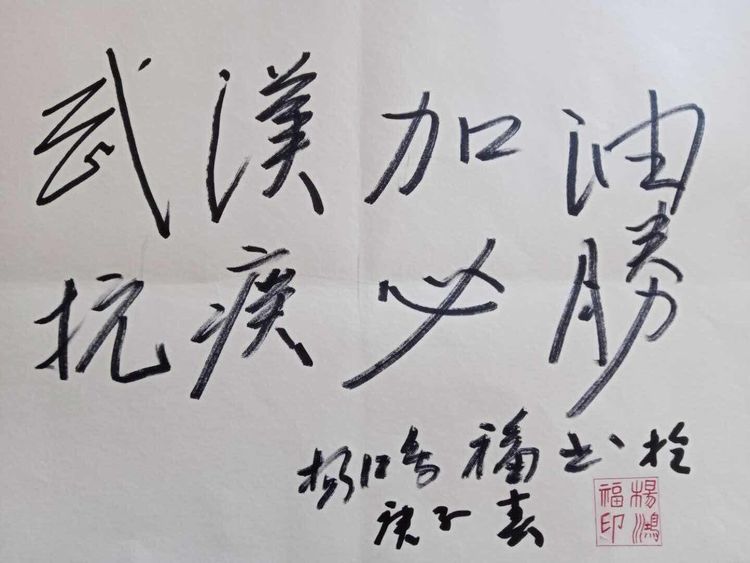 武漢加油
抗疫必勝
杨鸿福书於
庚子春
楊鴻
福印